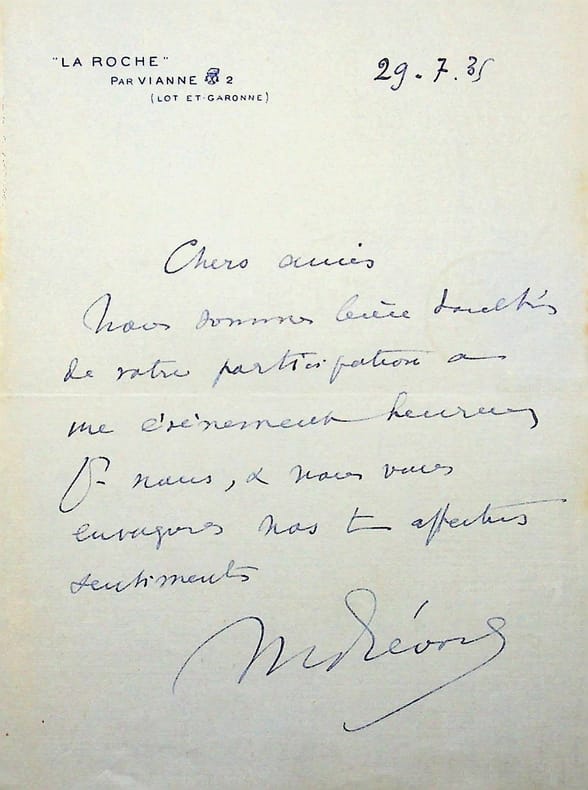 "LA ROCHE"
PAR VIANNE 2
(LOT-ET-GARONNE)
29.7.35
Chers amis
Nous sommes bien touchés
de votre participation a
une événement heureux
Pr nous, & nous vous
envoyons nos affectueux
sentiments